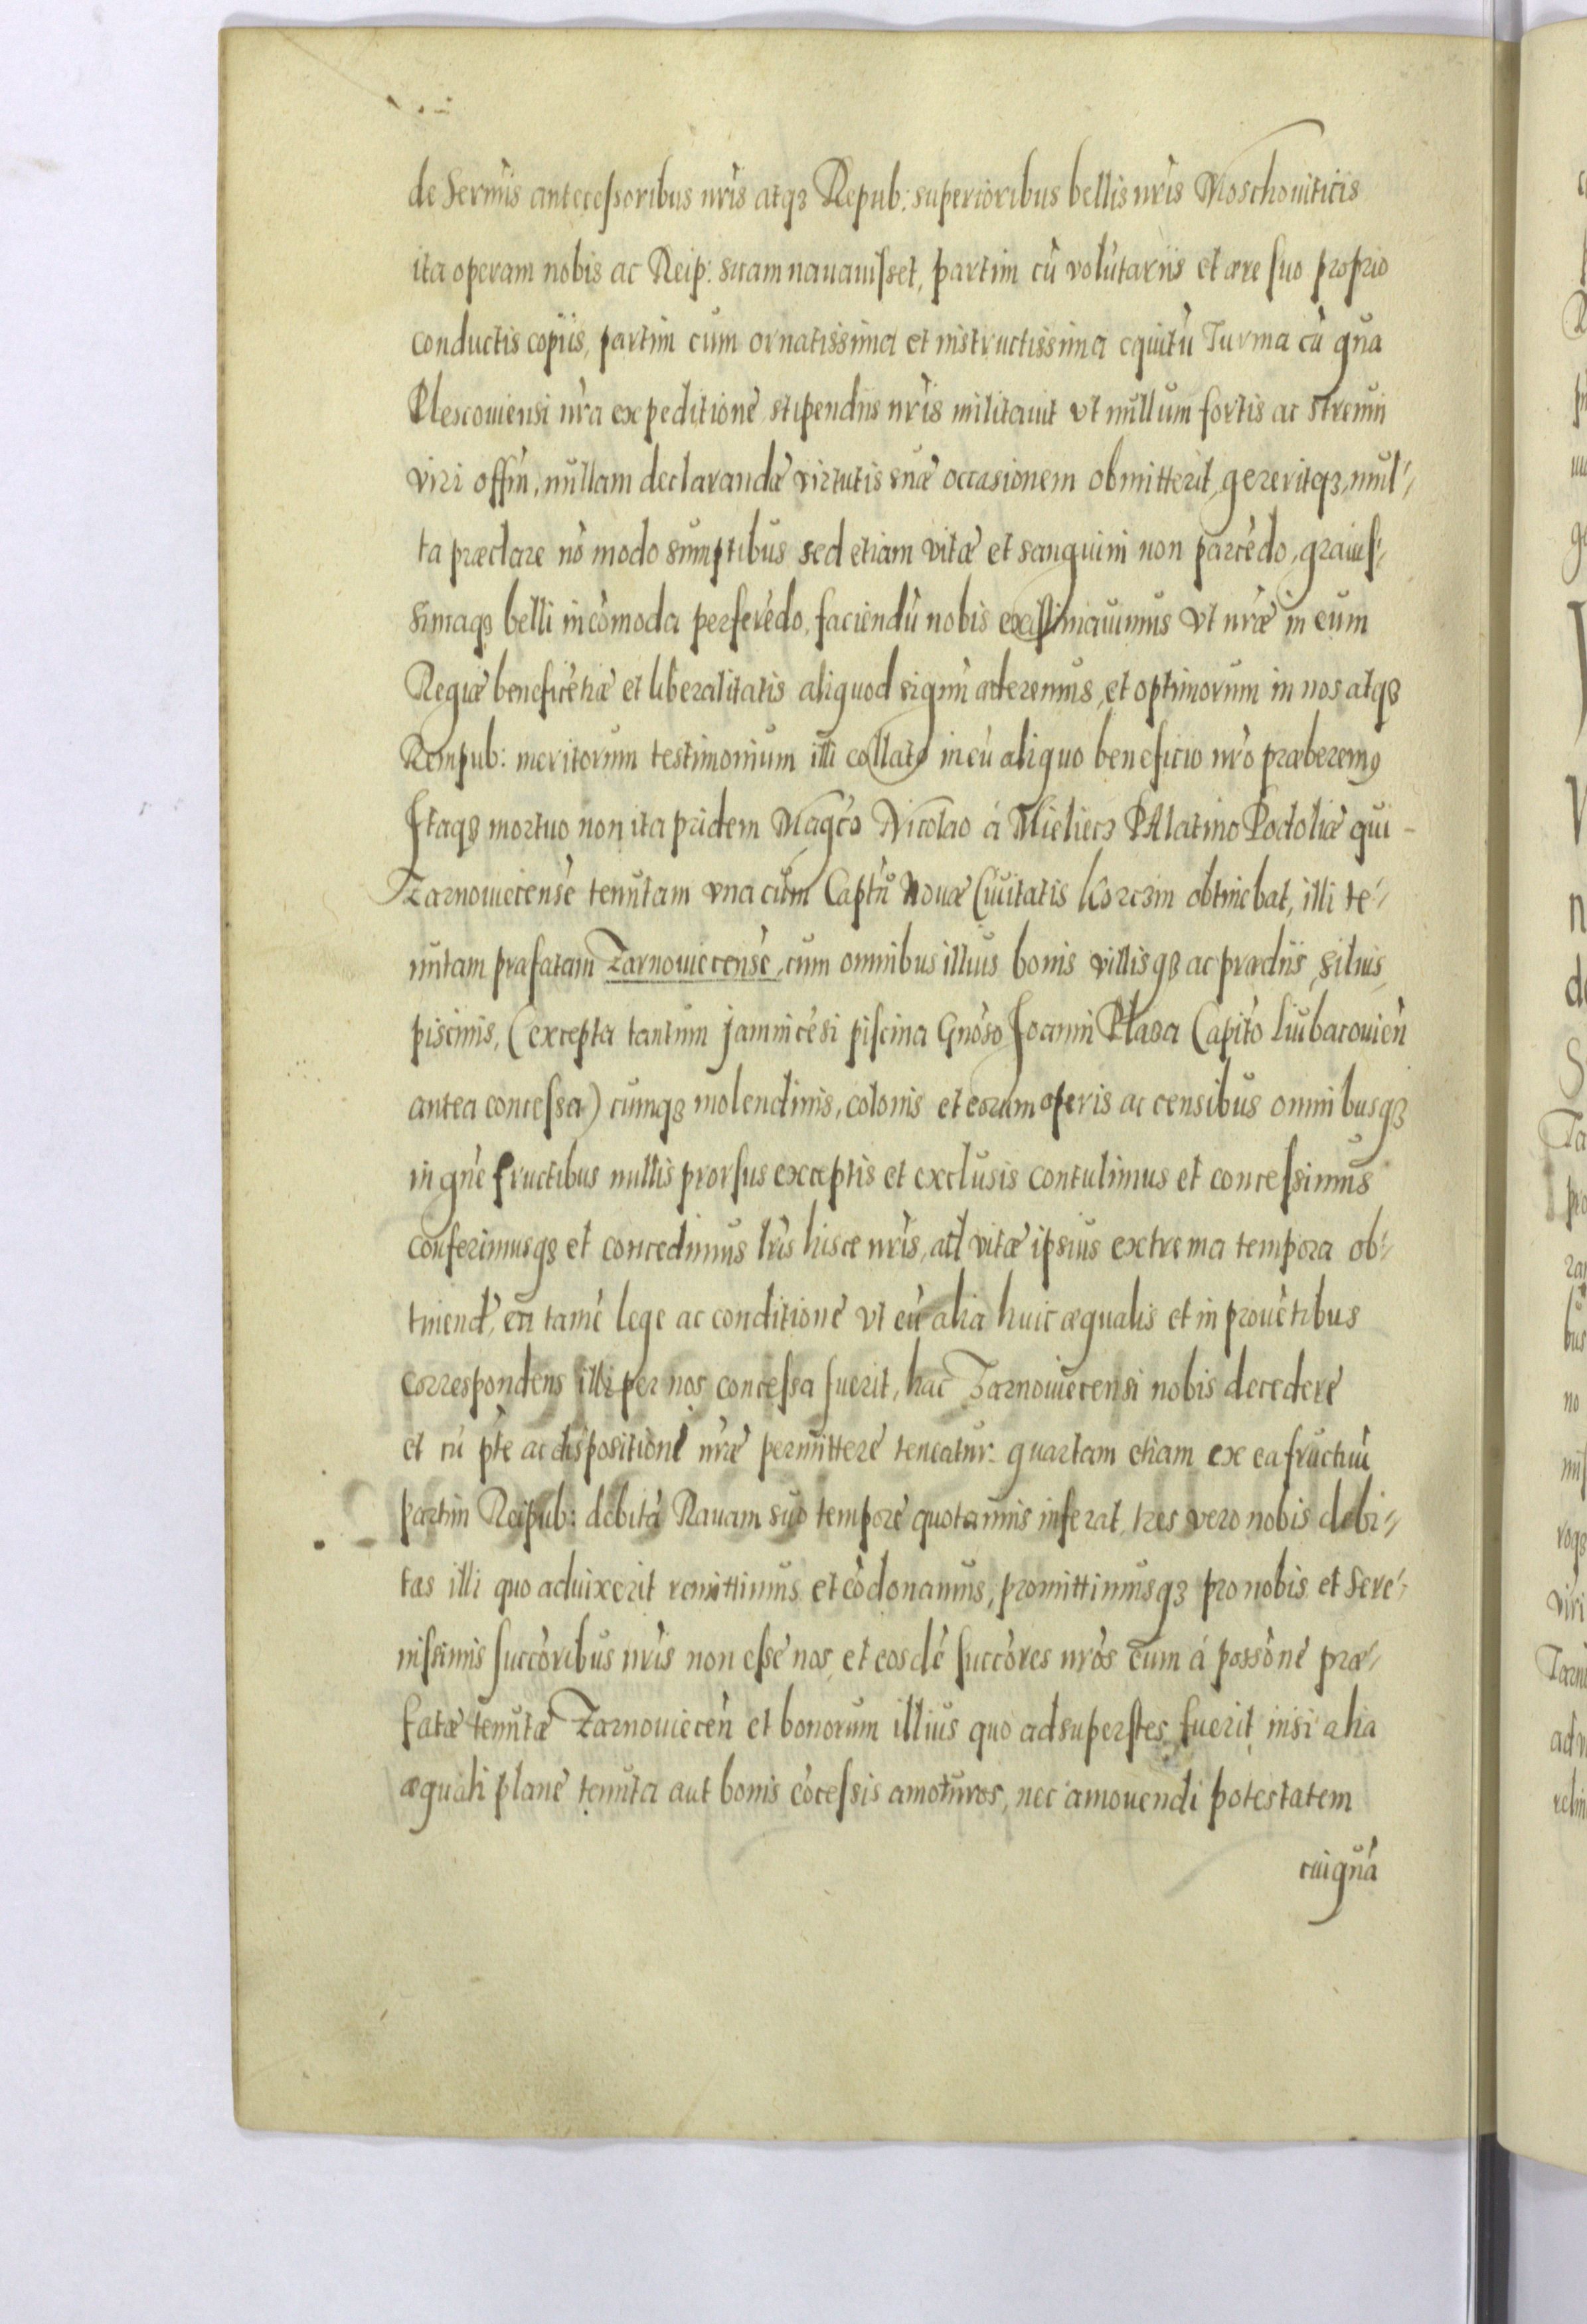 de Sermis antecessoribus nris atqz Repub: superioribus bellis nris Moschouiticis
ita operam nobis ac Reip: suam nauauisset, partim cũ volũtariis et ære suo proprio
conductis copiis, partim cum ornatissima et instructissima equitũ Turma cũ qua
Plescouiensi nra expeditione stipendiis nris militauit vt nullum fortis ac strenui
viri offm, nullam declarandæ virtutis suæ occasionem obmitterit, gereritqz mul-
ta præclare nõ modo sumptibus sed etiam vitæ et sanguini non parcẽdo, grauis-
simaqz belli incõmoda perferẽdo, faciendũ nobis existimauimus vt nræ in eum
Regiæ beneficẽtiæ et liberalitatis aliquod signũ æderemus, et optimorum in nos atqz
Rempub: meritorum testimonium illi collato in eũ aliquo beneficio nro præberem9
Itaqz mortuo non ita pridem Magco Nicolao á Mieliecz PAlatino Podoliæ qui
Zarnouiecense tenutam vna cum Captũ Nouæ Ciuitatis Korczin obtinebat, illi te-
nutam præfatam Zarnouiecensẽ, cum omnibus illius bonis villisqz ac prædiis, siluis,
piscinis, (excepta tantum jamnicẽsi piscina Gnoso Joanni Plaza Capito Liubacouieñ
antea concessa) cumqz molendinis, colonis et eorum operis ac censibus omnibusqz
in gñe fructibus nullis prorsus exceptis et exclusis contulimus et concessimus
conferimusqz et concedimus lris hisce nris, ad vitæ ipsius extrema tempora ob-
tinend, ea tamẽ lege ac conditione vt cũ alia huic æqualis et in prouẽtibus
correspondens illi per nos concessa fuerit, hac Zarnouiecensi nobis decedere
et cũ pte ac dispositioni nræ permittere teneatur: quartam etiam ex ea fructuũ
partm Reipub: debitã Rauam suo tempore quotannis inferat, tres vero nobis debi-
tas illi quo aduixerit remittimus et cõdonamus, promittimusqz pro nobis et Sere-
nissimis succõribus nris non esse nos et eosdẽ succõres nros eum á possõne præ-
fatæ tenutæ Zarnouieceñ et bonorum illius quo ad superstes fuerit nisi alia
æquali plane tenuta aut bonis cõcessis amoturos, nec amouendi potestatem
cuiquã